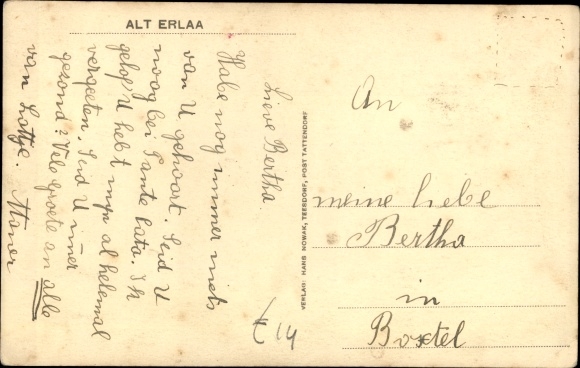 ALT ERLAA
Lieve Bertha.
Habe nog immer niets
van U gehoort. Seid U
noog bei Tante Cato. Ik
gelof U hebt mijn al helemal
vergeeten. Seid U imer
gesond? Vele groete an alle
van Lottje.
VERLAG: HANS NOWAK, TEESDORF, POST TATTENDORF
An
meine liebe
Bertha
in
Boxtel
14